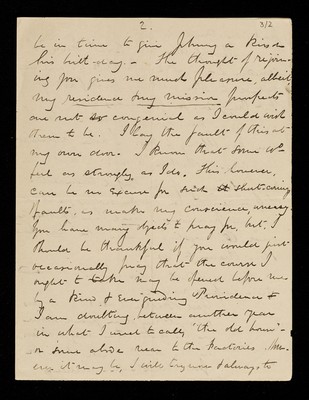 2.
3/2
be in time to give Johnny a kiss on
his birth-day. - The thought of rejoin-
ing you gives me much pleasure, albeit
my residence & my mission prospects
are not so congenial as I could wish
them to be. I lay the fault of this at
my own door. I know that some wd
feel as strongly as I do. This however,
can be no excuse for such short comings
& faults, as make my conscience uneasy.
You have many objects to pray for, but, I
should be thankful if you would just
occasionally pray that the course I
ought to take may be opened before me
by a kind & Ever guiding Providence &
I am doubting between another year
in what I used to call, "the old house"-
or some abode near to the factories.
it may be, I with & always to